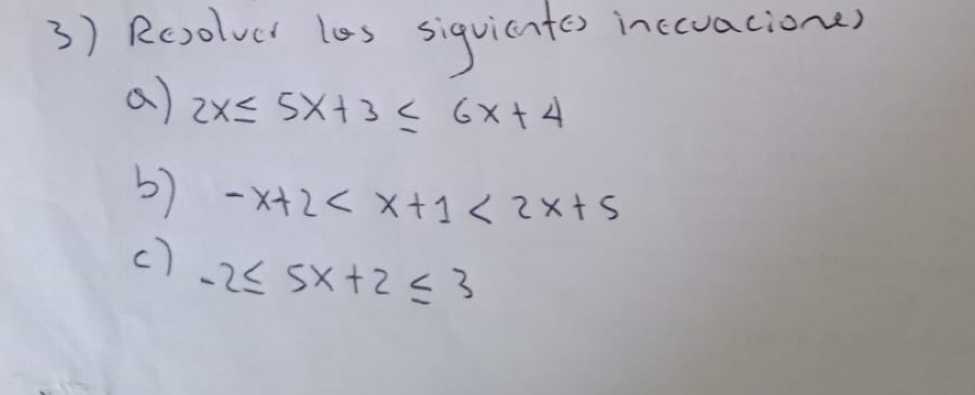 3) Resolver las siguientes inecuaciones
a) 2x ≤ 5x+3 ≤ 6x+4
b) -x+2 < x+1 < 2x+5
c) -2 ≤ 5x+2 ≤ 3